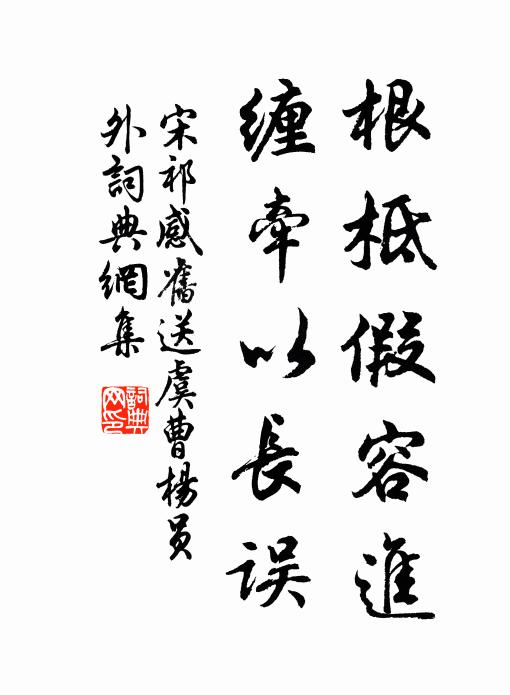 根柢假容進
纏牽以長误
宋祁感舊送虞曹楊員
外詞典網集
詞典
网印